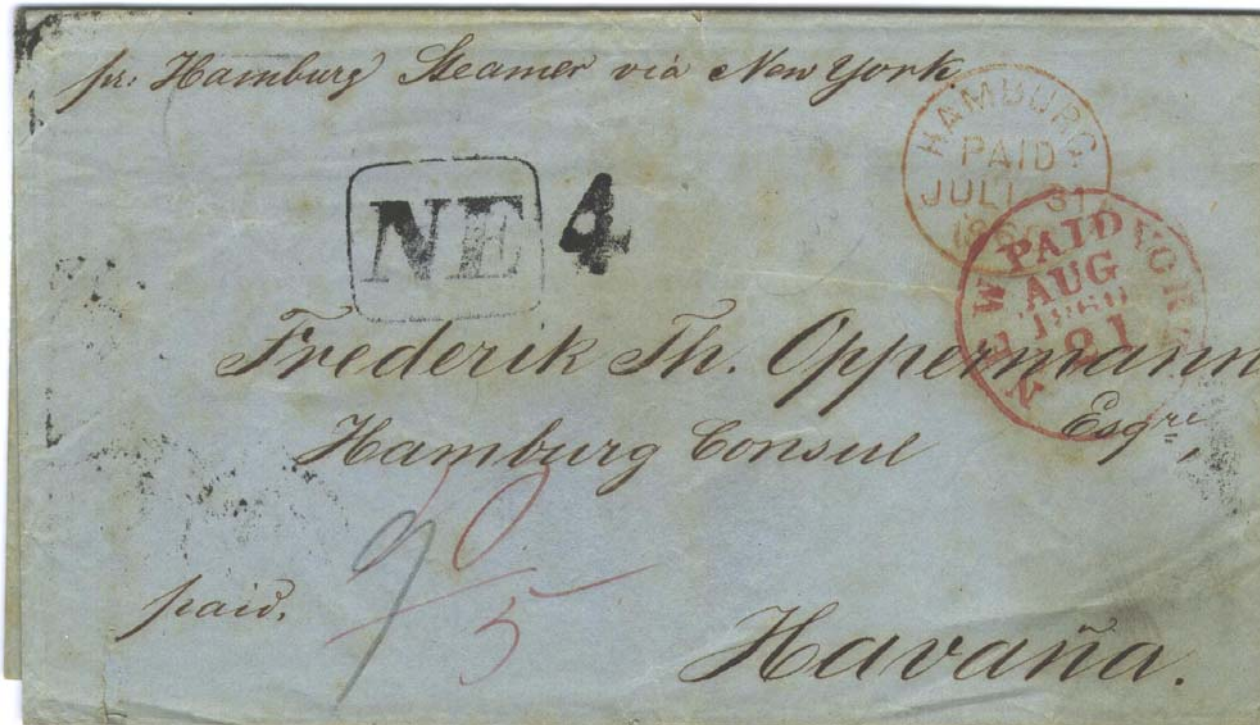 pr: Hamburg Steamer via New York
HAMBURG
PAID
JULI 31
NEW YORK
PAID
AUG
21
NE 4
Frederik Th. Oppermann
Esqre,
Hamburg Consul
90
5
paid.
Havaña.